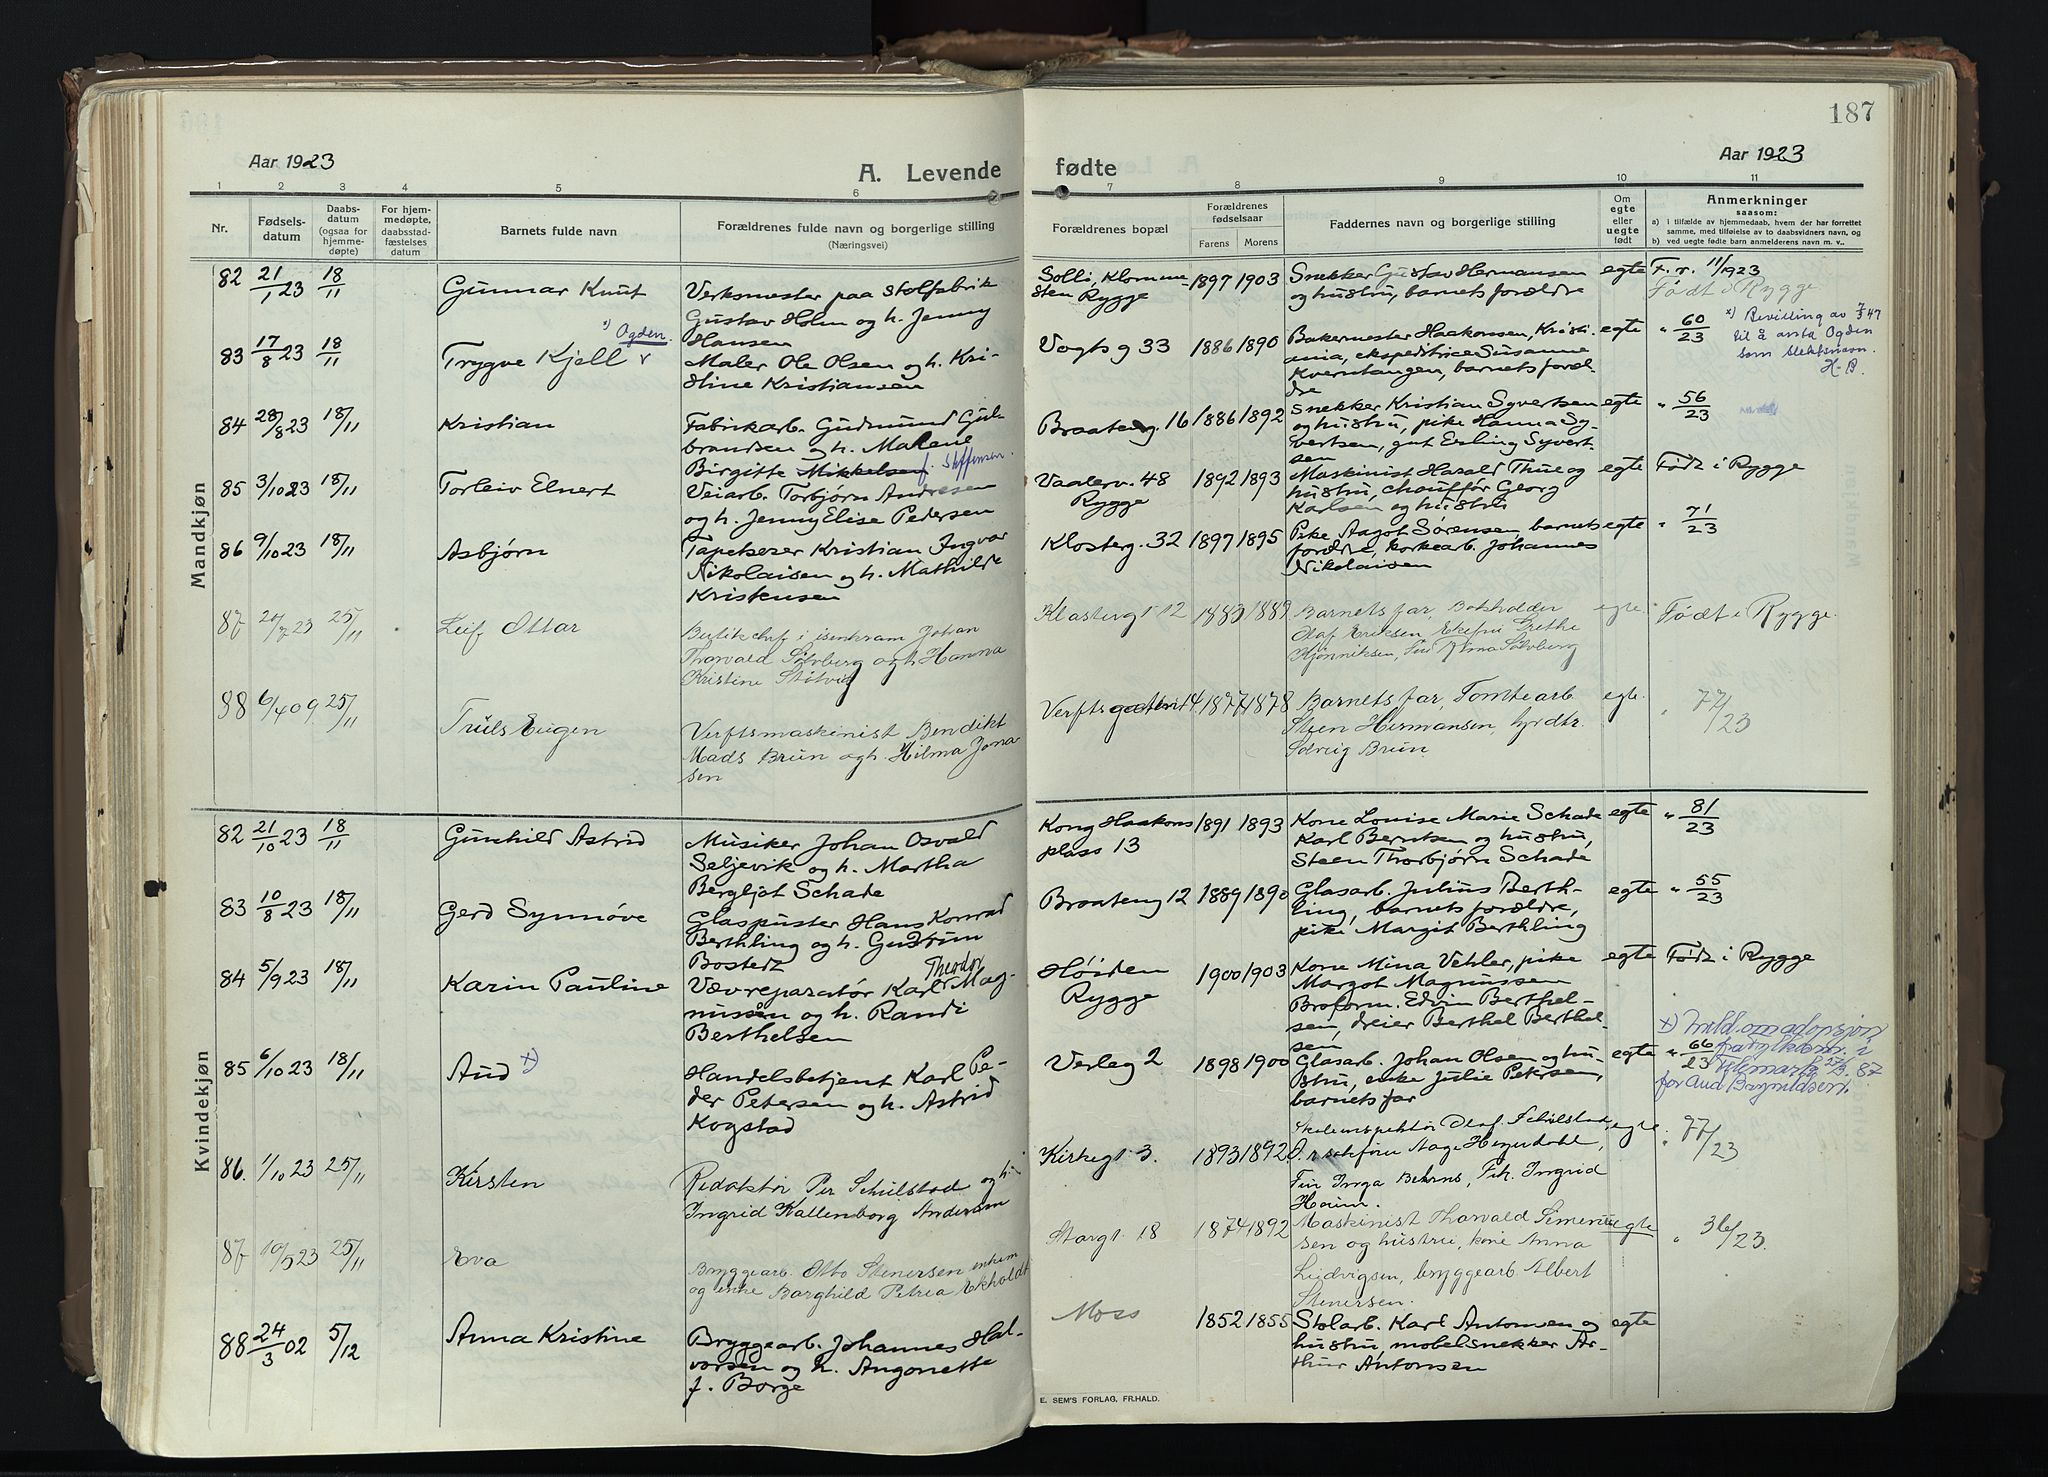 187
Aar 1923
A. Levende
fødte
Aar 1923
1 2 3 4 5 6 7 8 9 10 11
Nr.
Fødsels-
datum
Daabs-
datum
(ogsaa for
hjemme-
døpte)
For hjem-
medøpte,
daabsstad-
fæstelses
datum
Barnets fulde navn
Forældrenes fulde navn og borgerlige stilling
(Næringsvei)
Forældrenes bopæl
Forældrenes
fødselsaar
Farens Morens
Faddernes navn og borgerlige stilling
Om
egte
eller
uegte
født
Anmerkninger
saasom:
a) i tilfælde av hjemmedaab, hvem der har forrettet
samme, med tilføielse av to daabsvidners navn, og
b) ved uegte fødte barn anmelderens navn m. v..
Mandkjøn
82 21/1 23 18/11 Gunnar Knut
Verksmester paa stolfabrik
Gustav Holm og h. Jenny
Hansen
Solli, Klommе-
sten Rygge
1897 1903
Snekker Gustav Hermansen
og hustru, barnets forældre
egte
F. r. 11/1923
Født i Rygge
83 17/8 23 18/11 Trygve Kjell
Ogden
Maler Ole Olsen og h. Kri-
stine Kristiansen
Vogtsg 33 1886 1890
Bakermester Haakonsen, Kristi-
ania, ekspeditrice Susanne
Kverntangen, barnets foræl-
dre
egte
" 60/23
x) Bevilling av
til å anta Ogden
som slektsnavn.
H-B.
84 28/8 23 18/11 Kristian
Fabrikarb. Gudmund Gul-
brandsen og h. Malene
Birgitte Mikkelsen f. Steffensen.
Braateng. 16 1886 1892
Snekker Kristian Syvertsen
og hustru, pike Hanna Sy-
vertsen, gut Erling Syvert-
sen
egte
" 56/23
85 3/10 23 18/11 Torleiv Elnert
Veiarb. Torbjørn Andresen
og h. Jenny Elise Pedersen
Vaalerv. 48
Rygge
1892 1893
Maskinist Harald Thue og
hustru, chauffør Georg
Karlsen og hustru
egte
Født i Rygge
86 9/10 23 18/11 Asbjørn
Tapetserer Kristian Ingvar
Nikolaisen og h. Mathilde
Kristensen
Klosterg. 32 1897 1895
Pike Aagot Sørensen, barnets
forældre, korkearb. Johannes
Nikolaisen
egte
" 71/23
87 20/7 23 25/11 Leif Ottar
Butikchef i isenkram Johan
Thorvald Sølvberg og h. Hanna
Kristine Støtvig
Klostergt 12 1883 1889
Barnets far, Bokholder
Olaf Eriksen, Grethe
Hjønniksen, Alma Sølvberg
egte.
Født i Rygge.
88 6/4 09 25/11 Truls Eugen
Verftsmaskinist Bendikt
Mads Brun og h. Hilma Jona-
sen
Verftsgaten 14 1877 1878
Barnets far, Tomtearb.
Steen Hermansen,
Solveig Brun.
egte.
" 77/23
Kvindekjøn
82 21/10 23 18/11 Gunhild Astrid
Musiker Johan Osvald
Seljevik og h. Martha
Bergljot Schade
Kong Haakons
plass 13
1891 1893
Kone Louise Marie Schade
Karl Berntsen og hustru,
Steen Thorbjørn Schade
egte
" 81/23
83 10/8 23 18/11 Gerd Synnøve
Glaspuster Hans Konrad
Berthling og h. Gudrun
Bosted
Braateng 12 1889 1890
Glasarb. Julius Berth-
ling, barnets forældre,
pike Margit Berthling
egte
" 55/23
84 5/9 23 18/11 Karin Pauline
Theodor
Vævreparatør Karl Mag-
nussen og h. Randi
Berthelsen
Høiden
Rygge
1900 1903
Kone Mina Vehler, pike
Margot Magnussen
Broform. Edvin Berthel-
sen, dreier Berthel Berthel-
sen
egte
Født i Rygge
85 6/10 23 18/11 Aud x)
Handelsbetjent Karl Pe-
der Petersen og h. Astrid
Kogstad
Verleg 2 1898 1900
Glasarb. Johan Olsen og hu-
stru, enke Julie Petersen,
barnets far
egte
" 66/23
x) Meld. om adopsjon
fra fylkesm. i
Telemark 87
for Aud Brynildsen.
86. 1/10 23 25/11 Kirsten
Redaktør Per Schulstad og h.
Ingrid Kallenborg Andersen
Kirkegt. 3. 1893 1892
Skoleinspektør Olaf Schulstad,
Aage Heyerdahl,
Fru Inga Behrns, Frk. Ingrid
egte.
" 77/23
87 10/5 23 25/11 Eva
Bryggearb. Otto Stenersen enkem.
og enke Borghild Petrea Ekholdt
Storgt. 18 1874 1892
Maskinist Thorvald Simen-
sen og hustru, kone Anna
Ludvigsen, bryggearb Albert
Stenersen.
uegte
" 36/23.
88 24/3 02 5/12 Anna Kristine
Bryggearb. Johannes Hal-
vorsen og h. Angonette
f. Borge
Moss 1852 1855
Stolarb. Karl Antonsen og
hustru, møbelsnekker Ar-
thur Antonsen
egte
E. SEM'S FORLAG, FR.HALD.